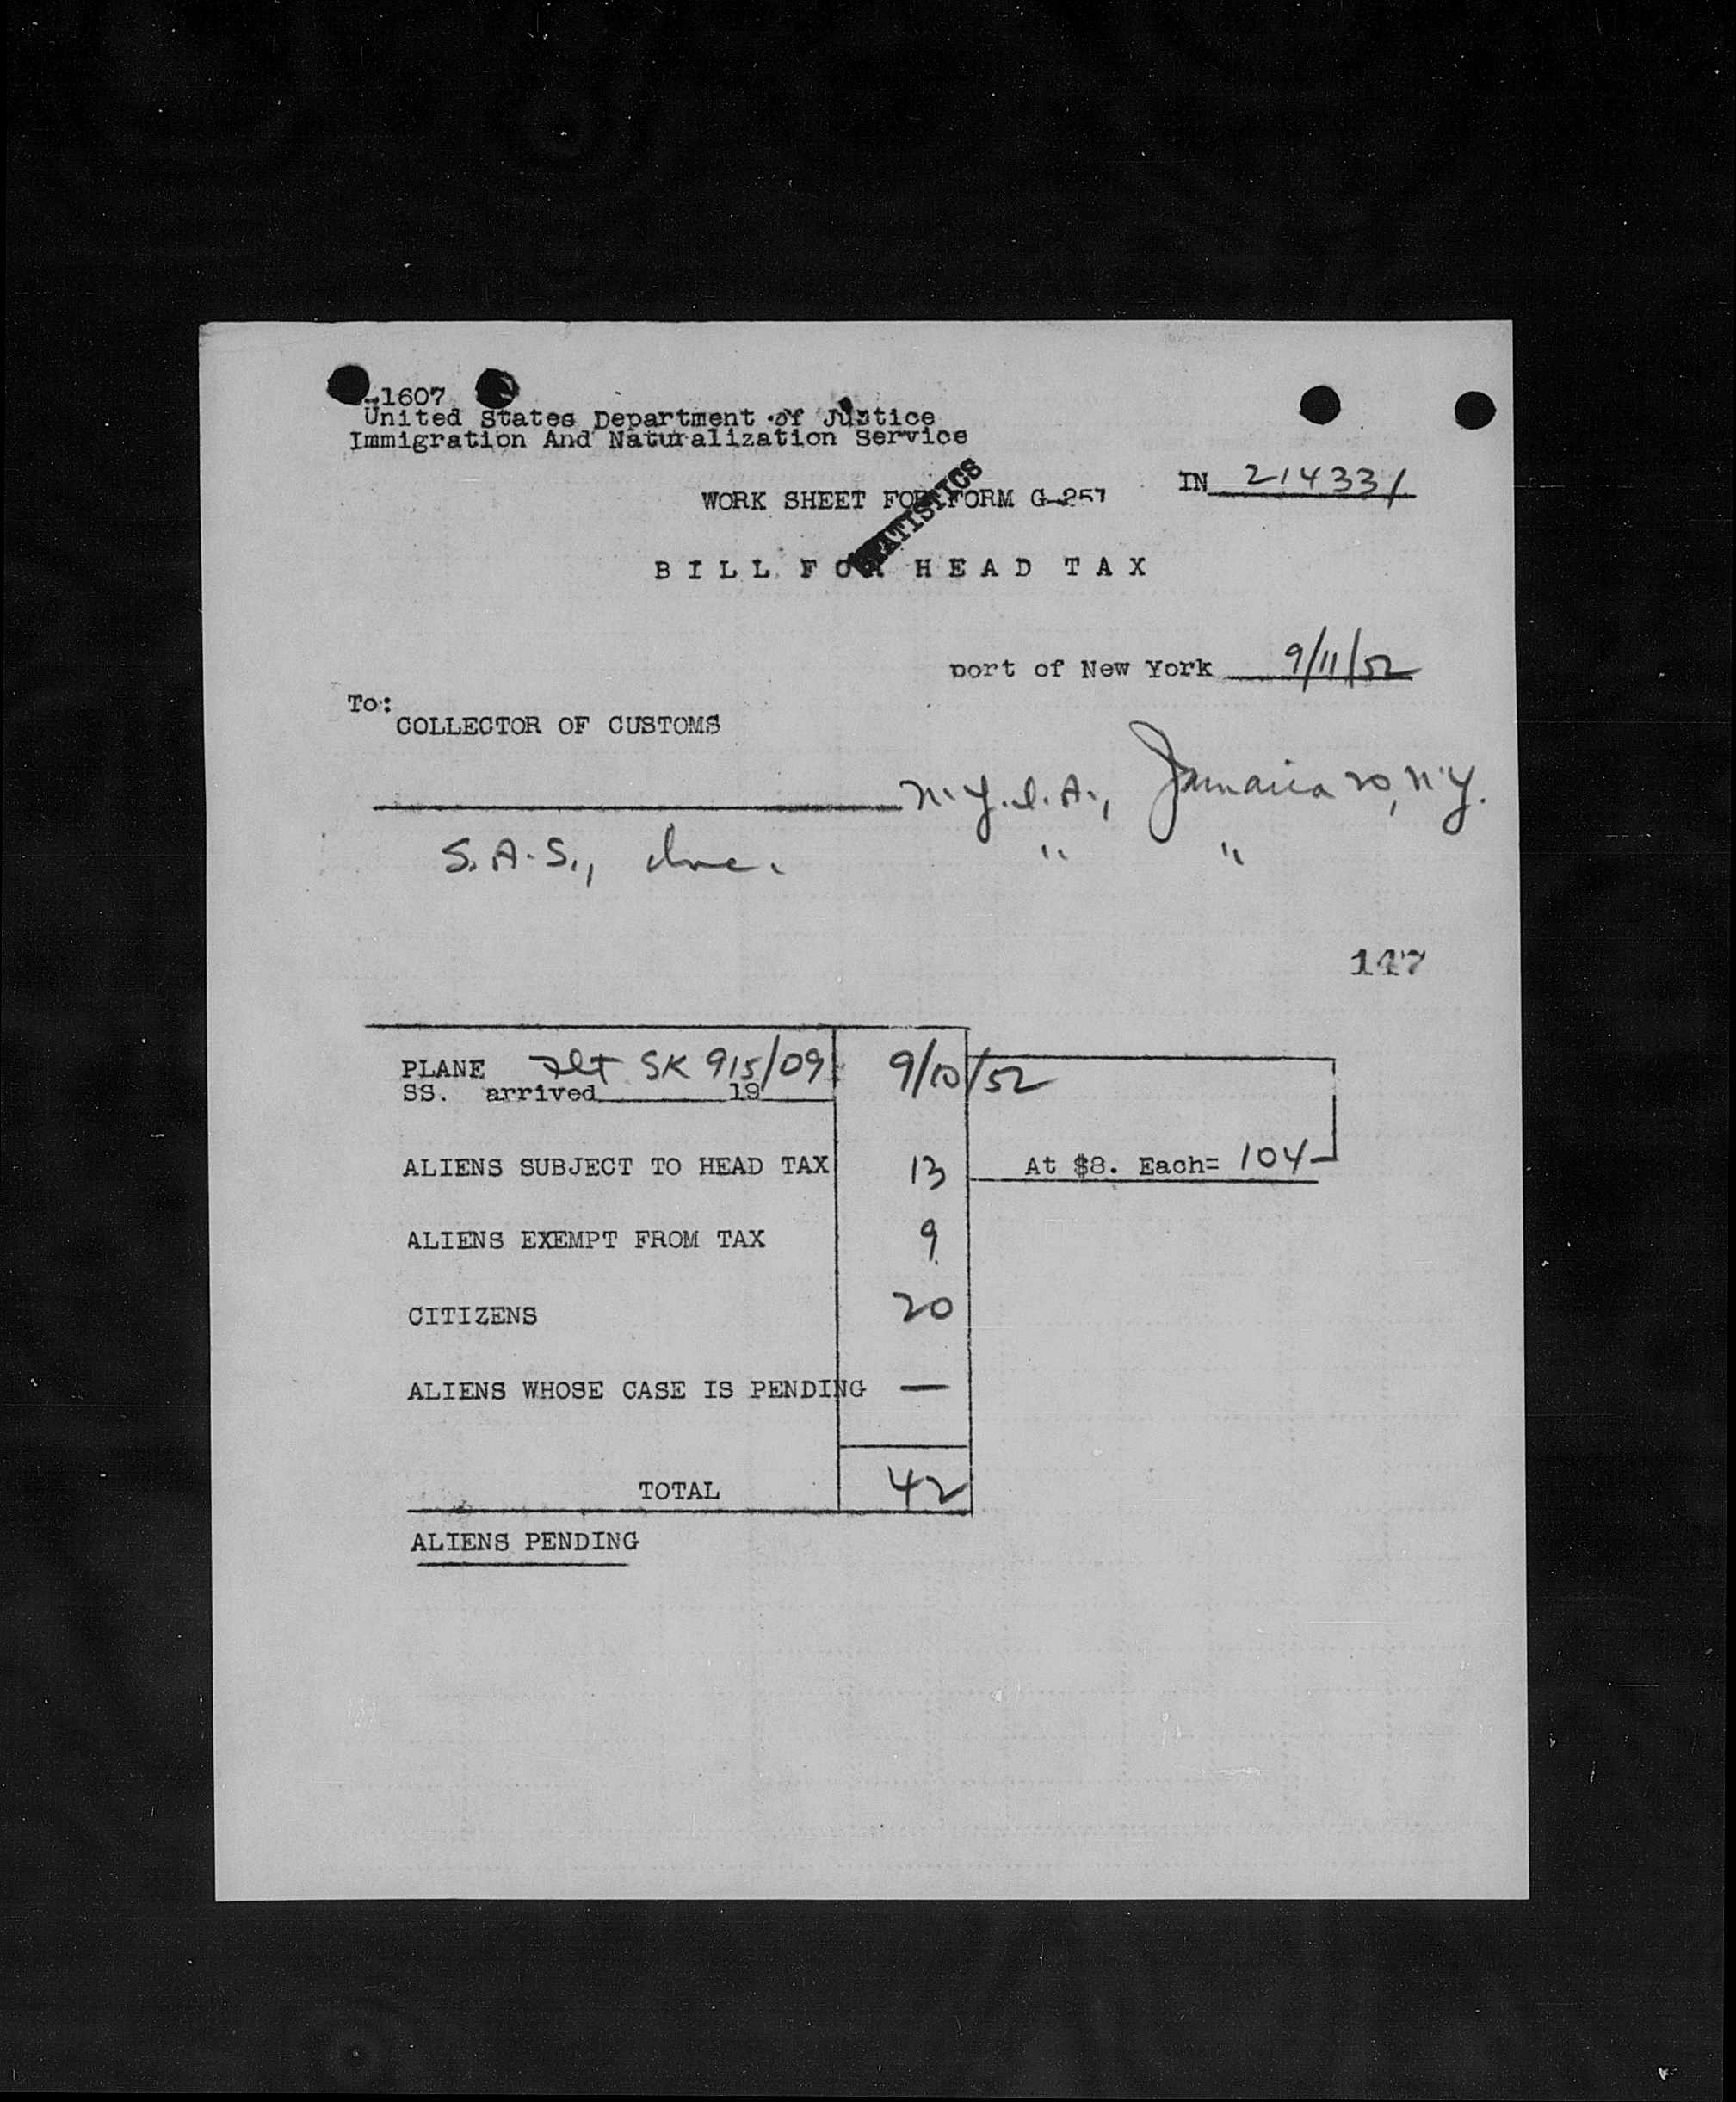 1607
United States Department of Justice
Immigration And Naturalization Service
WORK SHEET FOR FORM G-257
IN 214331
STATISTICS
BILL FOR HEAD TAX
port of New York 9/11/52
To:
COLLECTOR OF CUSTOMS
N.Y.I.A., Jamaica 20, N.Y.
S.A.S., Inc. " "
147
PLANE Flt SK 915/09 9/10/52
SS. arrived 19
ALIENS SUBJECT TO HEAD TAX 13 At $8. Each= 104-
ALIENS EXEMPT FROM TAX 9
CITIZENS 20
ALIENS WHOSE CASE IS PENDING —
TOTAL 42
ALIENS PENDING